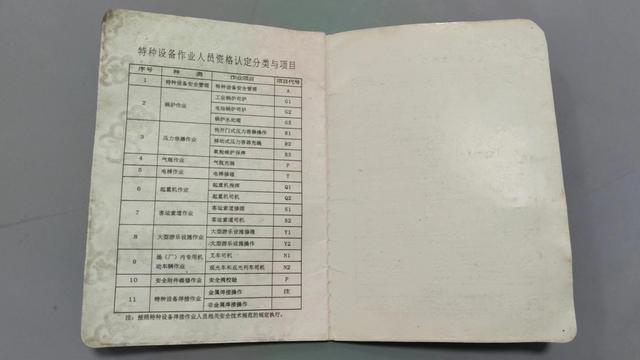 特种设备作业人员资格认定分类与项目
序号 种类 作业项目 项目代号
1 特种设备安全管理 特种设备安全管理 A
2 锅炉作业 工业锅炉司炉 G1
电站锅炉司炉 G2
锅炉水处理 G3
3 压力容器作业 快开门式压力容器操作 R1
移动式压力容器充装 R2
氧舱维护保养 R3
4 气瓶作业 气瓶充装 P
5 电梯作业 电梯修理 T
6 起重机作业 起重机指挥 Q1
起重机司机 Q2
7 客运索道作业 客运索道修理 S1
客运索道司机 S2
8 大型游乐设施作业 大型游乐设施修理 Y1
大型游乐设施操作 Y2
9 场（厂）内专用机动车辆作业 叉车司机 N1
观光车和观光列车司机 N2
10 安全附件维修作业 安全阀校验 F
11 特种设备焊接作业 金属焊接操作 注
非金属焊接操作
注：按照特种设备焊接作业人员相关安全技术规范的规定执行。